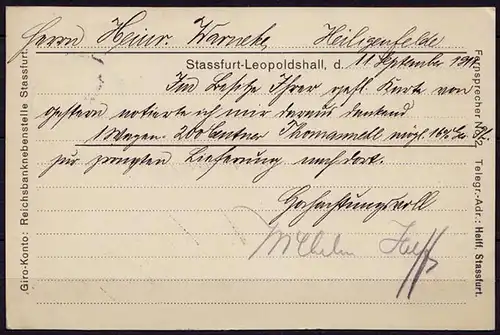 Herrn Heinr. Warneke, Heiligenfelde
Stassfurt-Leopoldshall, d. 11 September 191
Im Besitze Ihrer gefl. Karte von
gestern notierte ich mir daraus dankend
1 Wagen 200 Centner Thomasmehl
zur prompten Lieferung nach dort.
Hochachtungsvoll
Wilhelm Helff
Giro-Konto: Reichsbanknebenstelle Stassfurt.
Fernsprecher No. Telegr.-Adr.: Helff, Stassfurt.